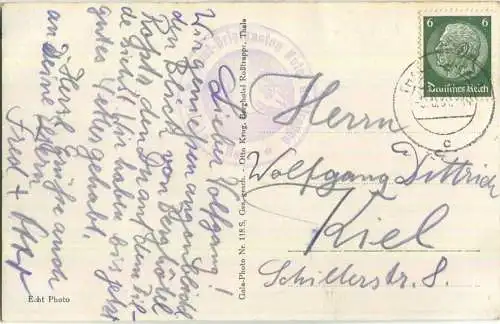 Lieber Wolfgang!
Wir genießen augenblicklich
den Blick vom Berghotel
Roßtr. den Du auf dem Bil-
de siehst. Wir haben bis jetzt
gutes Wetter gehabt.
Herzl. Grüße auch
an Deine Eltern
Fred +
Echt Photo
Gala-Photo Nr. 118 S. Ges. gesch. - Otto Krug, Berghotel Roßtrappe, Thale
6 6
Deutsches Reich
Herrn
Wolfgang Dittrich
Kiel
Schillerstr. 8.